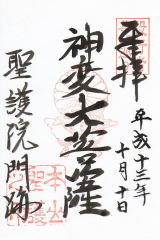 奉拝
平成十三年
十月十日
神変大菩薩
聖護院門跡